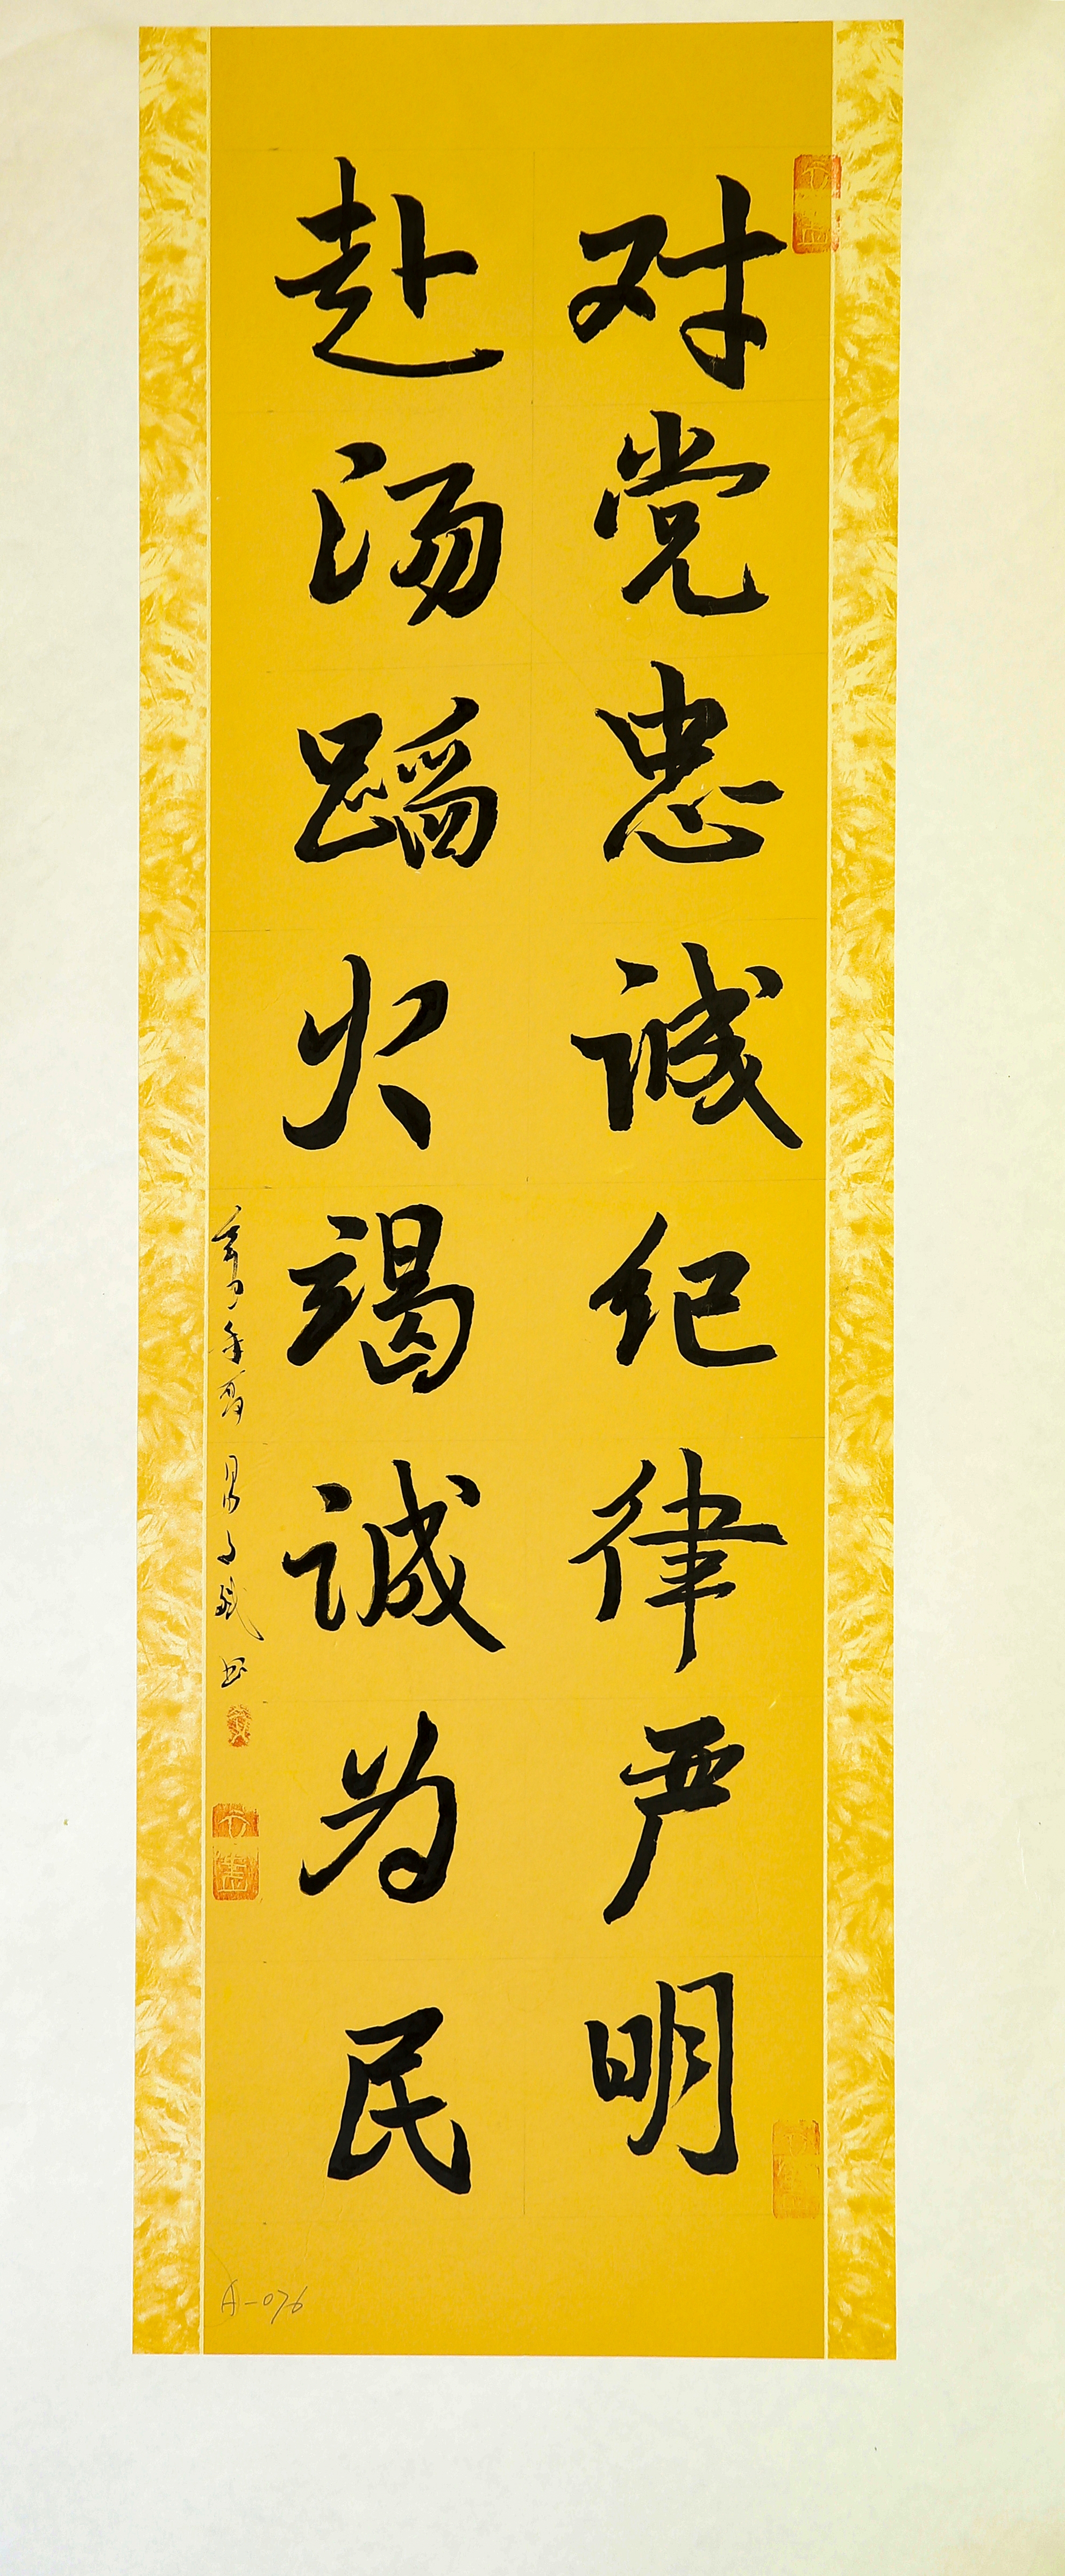 对党忠诚纪律严明
赴汤蹈火竭诚为民
A-076